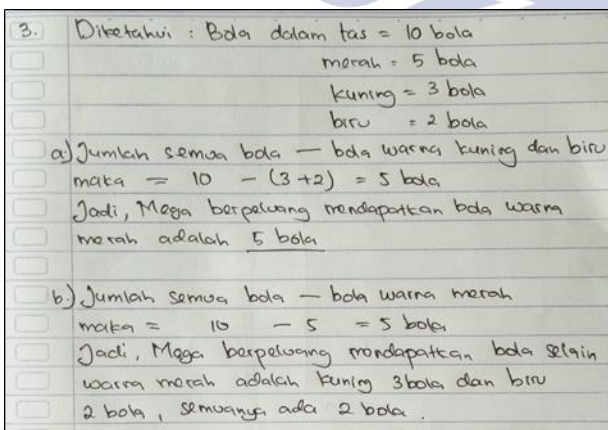 3. Diketahui : Bola dalam tas = 10 bola
merah = 5 bola
kuning = 3 bola
biru = 2 bola
a.) Jumlah semua bola — bola warna kuning dan biru
maka = 10 - (3+2) = 5 bola
Jadi, Mega berpeluang mendapatkan bola warna
merah adalah 5 bola
b.) Jumlah semua bola — bola warna merah
maka = 10 - 5 = 5 bola
Jadi, Mega berpeluang mendapatkan bola selain
warna merah adalah kuning 3 bola dan biru
2 bola, semuanya ada 2 bola.